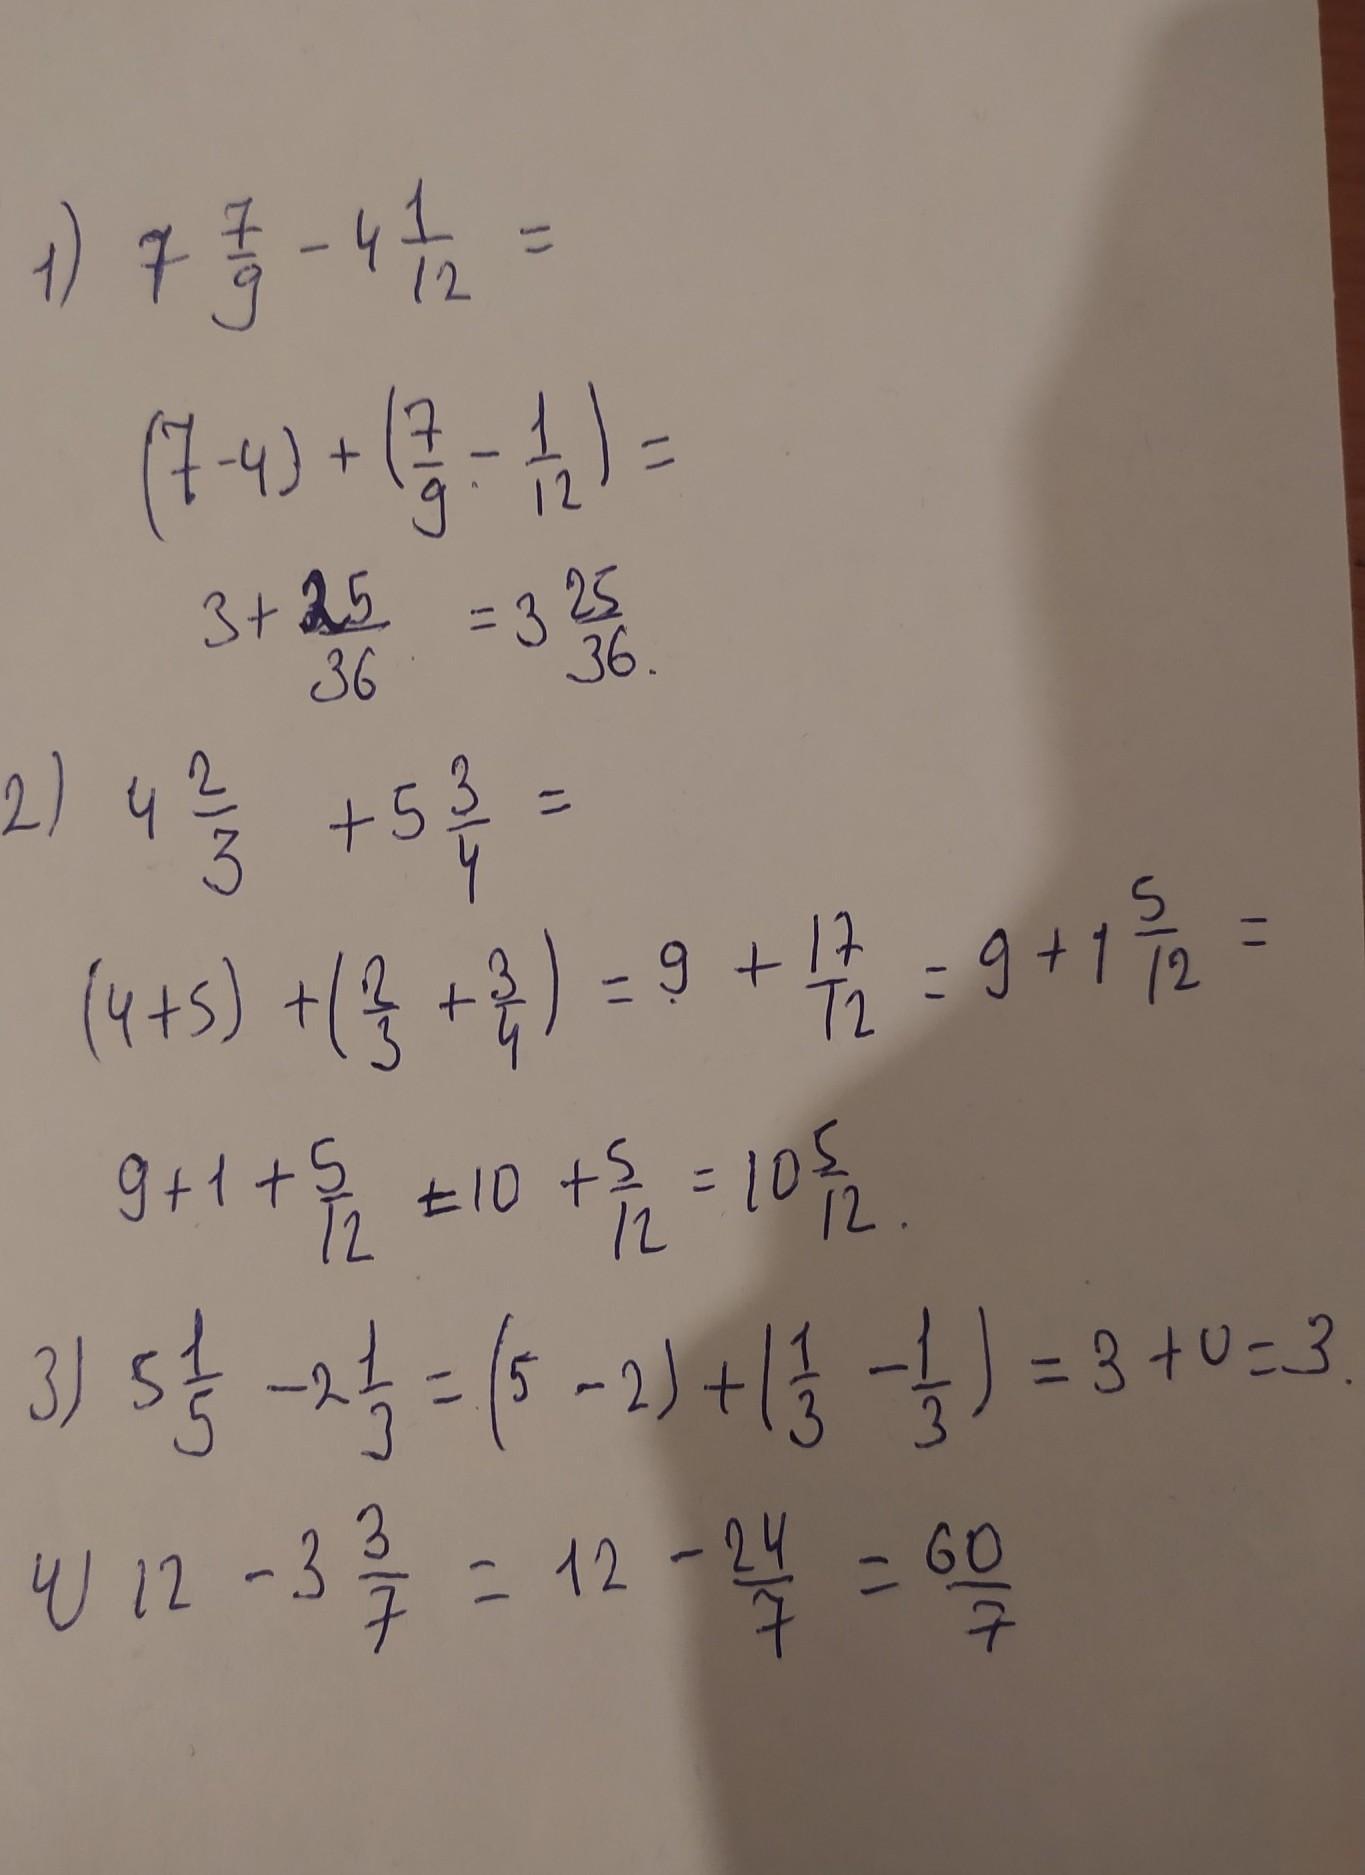 1) 7 7/9 - 4 1/12 =
(7-4) + (7/9 - 1/12) =
3 + 25/36 = 3 25/36.
2) 4 2/3 + 5 3/4 =
(4+5) + (2/3 + 3/4) = 9 + 17/12 = 9 + 1 5/12 =
9 + 1 + 5/12 = 10 + 5/12 = 10 5/12.
3) 5 1/5 - 2 1/3 = (5 - 2) + (1/3 - 1/3) = 3 + 0 = 3.
4) 12 - 3 3/7 = 12 - 24/7 = 60/7